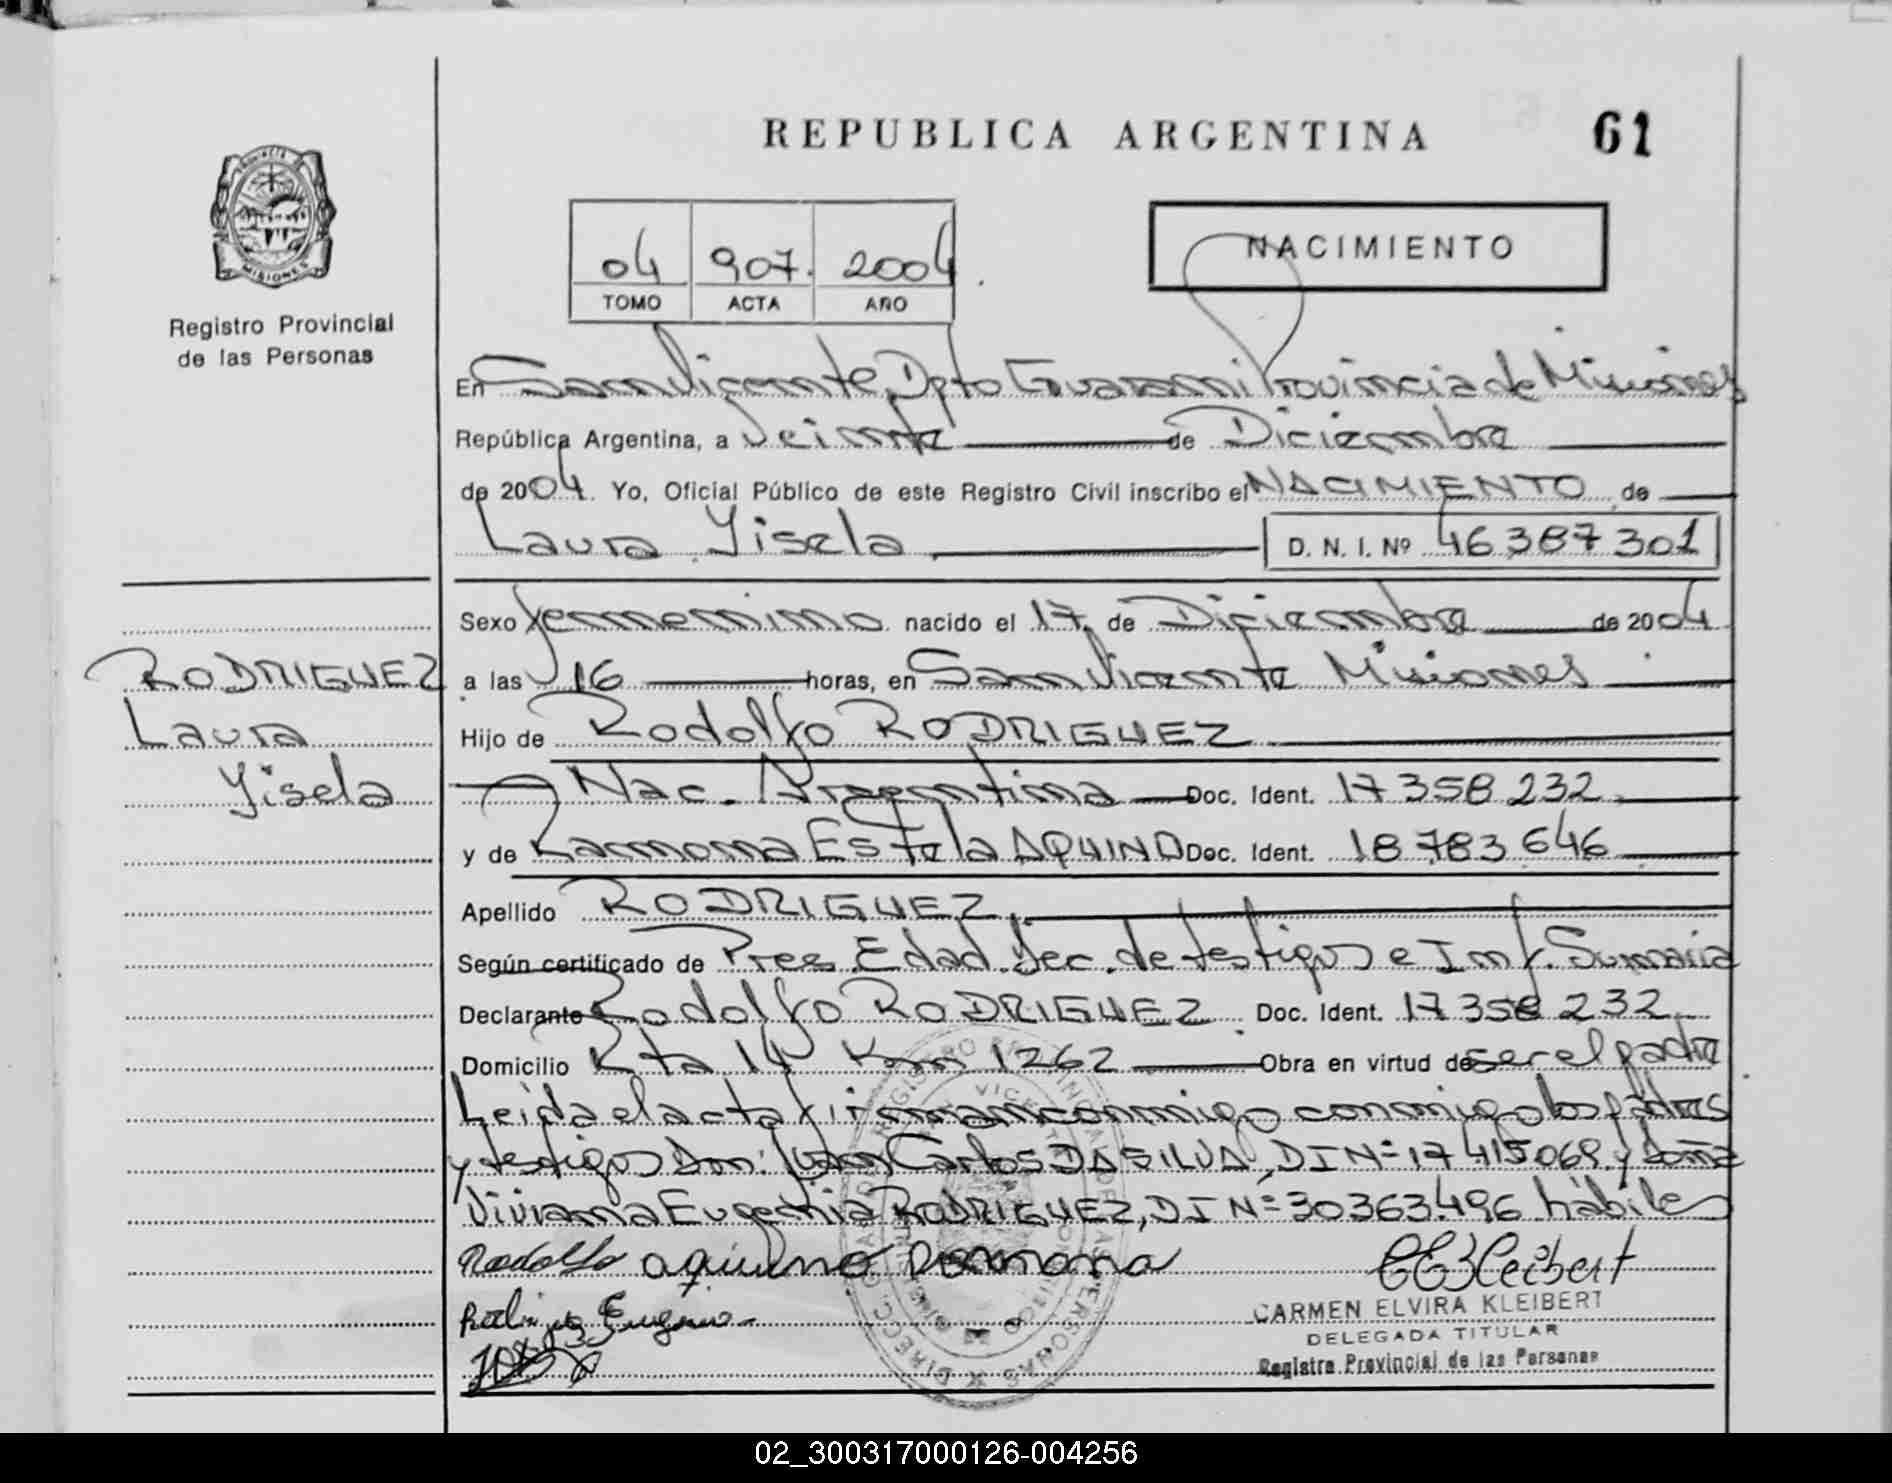 REPUBLICA ARGENTINA 61
PROVINCIA DE
MISIONES
Registro Provincial
de las Personas
04 907. 2004
TOMO ACTA AÑO
NACIMIENTO
En San Vicente, Dpto Guarani Provincia de Misiones
República Argentina, a Veinte de Diciembre
de 2004. Yo, Oficial Público de este Registro Civil inscribo el NACIMIENTO de
Laura Yisela D. N. I. Nº 46387301
Sexo femenino nacido el 17 de Diciembre de 2004
a las 16 horas, en San Vicente Misiones
Hijo de Rodolfo RODRIGUEZ
Nac. Argentina Doc. Ident. 17358232
y de Ramona Estela AQUINO Doc. Ident. 18783646
Apellido RODRIGUEZ
Según certificado de Pres. Edad. Dec. de testigos e Inf. Sumaria
Declarante Rodolfo RODRIGUEZ Doc. Ident. 17358232
Domicilio Rta 14 Km 1262 Obra en virtud de ser el padre
Leida el acta firman conmigo conmigo los padres
y testigos Don: Juan Carlos DA SILVA, DI Nº 17415069 y doña
Viviana Eugenia RODRIGUEZ, DI Nº 30363496 hábiles
RODRIGUEZ
Laura
Yisela
Rodolfo aquino Ramona
CEKleibert
CARMEN ELVIRA KLEIBERT
DELEGADA TITULAR
Registro Provincial de las Personas
02_300317000126-004256